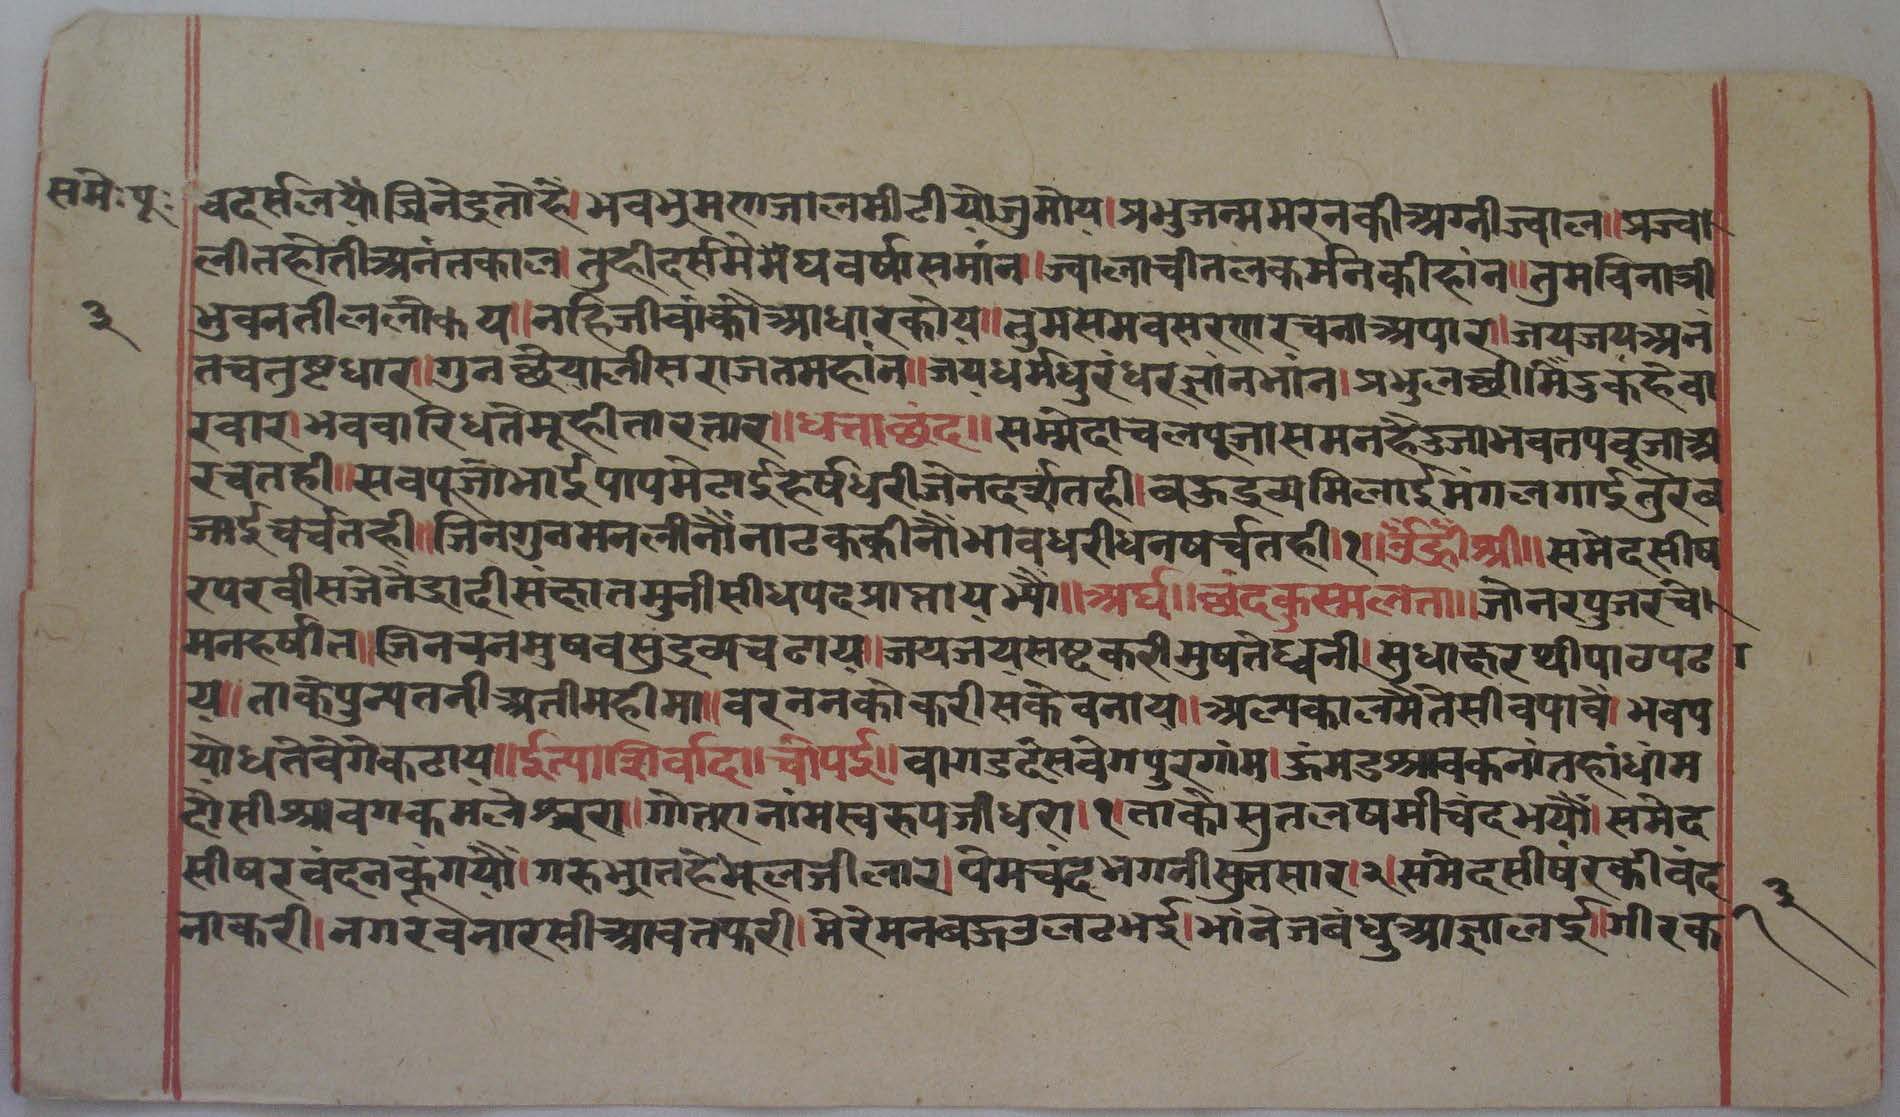 समे॰पू॰
३
वदर्सलयौ जिनेद्रतोहै। भवभ्रमणजालमीटीयोजुमोय। प्रभुजन्ममरनकीअग्नीज्वाल॥ प्रज्वा
लीतहोतीअनंतकाल। तुहीदर्समेमेघवर्षासमांन॥ ज्वालाचीतलकर्मनकीहांन॥ तुमविनात्री
भुवनतीललोकय॥ नहिजीवांकौआधारकोय॥ तुमसमवसरणरचनाअपार॥ जयजयअनं
तचतुष्टधार॥ गुनछैयालीसराजतमहांन॥ जयधर्मधुरंधरज्ञांनभांन। प्रभुलछीमिडकहैवा
रवार। भववारिधतेमूहीतारतार॥ धत्ताछंद॥ सम्मेदाचलपूजासमनहैदुजाभवतपवूजाअ
रचतही॥ सवपूजोभाईपापमेटाईहर्षधरीजैनदर्च्यतही। वऊद्रव्यमिलाईमंगलगाईतुरव
जाईचर्चतही॥ जिनगुनमनलीनौनाटककीनौभावधरीधनषर्चतही। १॥ ॐह्रीश्री॥ समेदसीष
रपरवीसजैनैद्रादीसंख्यातमुनीसीधपदप्राप्ताय भ्यौ॥ अर्घ॥ छंदकुस्मलता॥ जोनरपुजरचे
मनहर्षीत॥ जिनचनमुषवसुद्रव्यचढाय॥ जयजयसष्टकरीमुषतेध्वनी। सुधाक्षरथीपाठपढा
य॥ ताकेपुन्यतनीअतीमहीमा॥ वरननकोकरीसकेवनाय॥ अल्पकालमैतेसीवपावै। भवप
योधतेवेगेकढाय॥ ईत्याशिर्वाद॥ चौपई॥ वागडदेसवेगपुरगांम। ऊंमडश्रावकनांतहांधांम
होसीश्रावगकमलेश्वरा॥ गौतणनांमस्वरूपजीधरा। १। ताकोसुतलषमीचंदभयौ। समेद
सीषरवंदनकूंगयौ। गरुभ्रातहैमूलजीलार। पेमचंदभगनीसुतसार। २। संमेदसीषरकीवंद
नाकरी। नगरवनारसीआवतफरी। मेरेमनबऊउलटभई। भांनेजबंधुआज्ञालई॥ गीरक
३